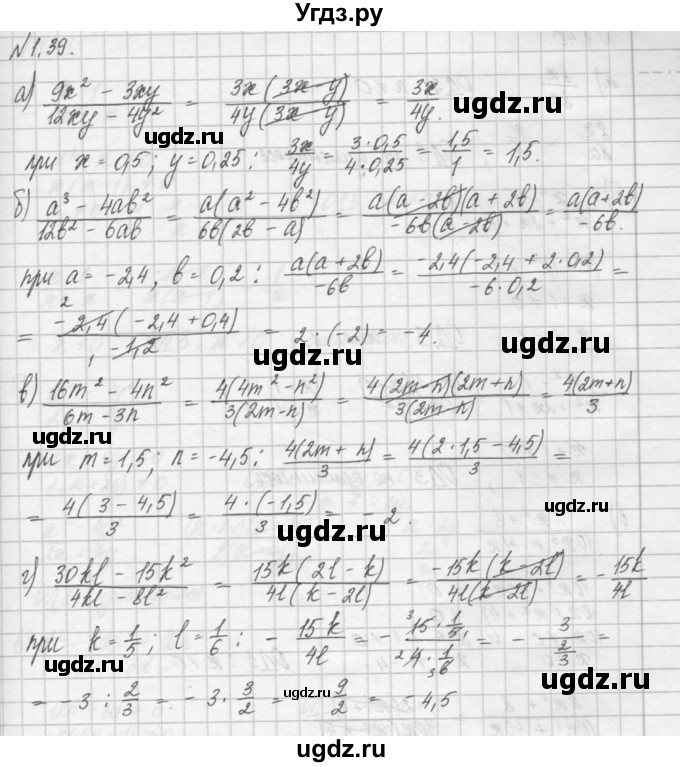 Угдз.ру
№1.39.
а) (9x² - 3xy)/(12xy - 4y²) = (3x(3x - y))/(4y(3x - y)) = 3x/4y.
ugdz.ru ugdz.ru
при x = 0,5; y = 0,25: 3x/4y = (3·0,5)/(4·0,25) = 1,5/1 = 1,5.
ugdz.ru
б) (a³ - 4ab²)/(12b² - 6ab) = (a(a² - 4b²))/(6b(2b - a)) = (a(a - 2b)(a + 2b))/(-6b(a - 2b)) = (a(a + 2b))/(-6b).
при a = -2,4, b = 0,2: (a(a + 2b))/(-6b) = (-2,4(-2,4 + 2·0,2))/(-6·0,2) =
= (-2,4(-2,4 + 0,4))/(-1,2) = 2·(-2) = -4.
ugdz.ru
ugdz.ru
в) (16m² - 4n²)/(6m - 3n) = (4(4m² - n²))/(3(2m - n)) = (4(2m - n)(2m + n))/(3(2m - n)) = (4(2m + n))/3
ugdz.ru
при m = 1,5; n = -4,5: (4(2m + n))/3 = (4(2·1,5 - 4,5))/3 =
= (4(3 - 4,5))/3 = (4·(-1,5))/3 = -2.
ugdz.ru
ugdz.ru
г) (30kl - 15k²)/(4kl - 8l²) = (15k(2l - k))/(4l(k - 2l)) = (-15k(k - 2l))/(4l(k - 2l)) = -15k/4l
при k = 1/5; l = 1/6: -15k/4l = -(15·1/5)/(4·1/6) = -3/(2/3) =
ugdz.ru ugdz.ru
= -3 : 2/3 = -3·3/2 = -9/2 = -4,5
ugdz.ru
ugdz.ru